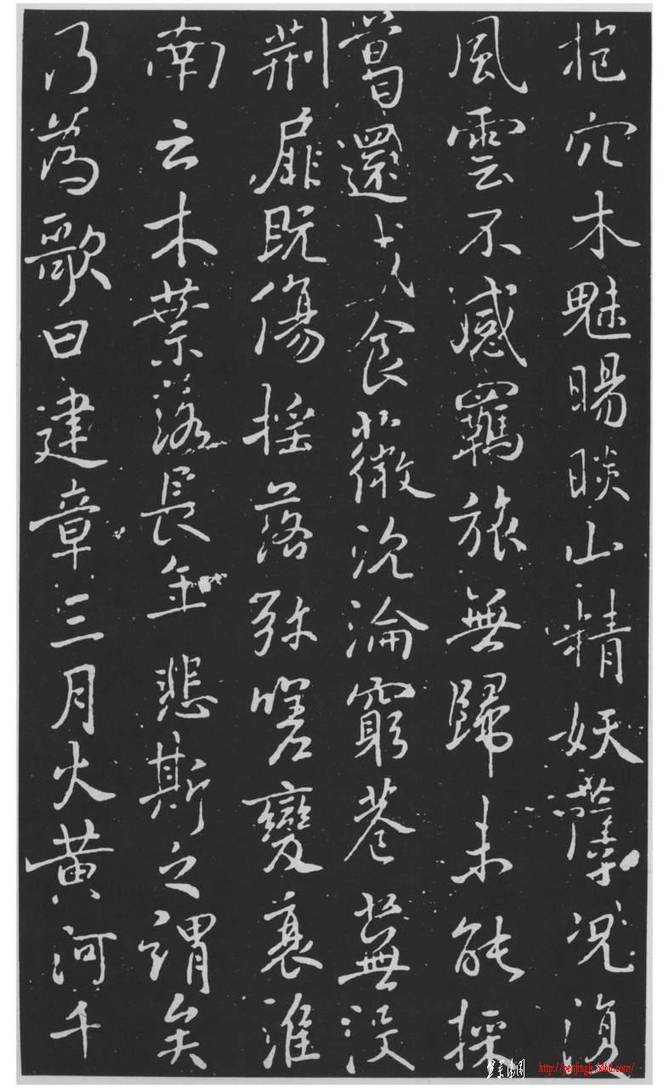 抱穴木魅睗睒山精妖孽況復
風雲不感羈旅無歸未能採
葛還成食薇沉淪窮巷蕪沒
荊扉既傷搖落弥嗟變衰淮
南云木葉落長年悲斯之謂矣
乃為歌曰建章三月火黃河千